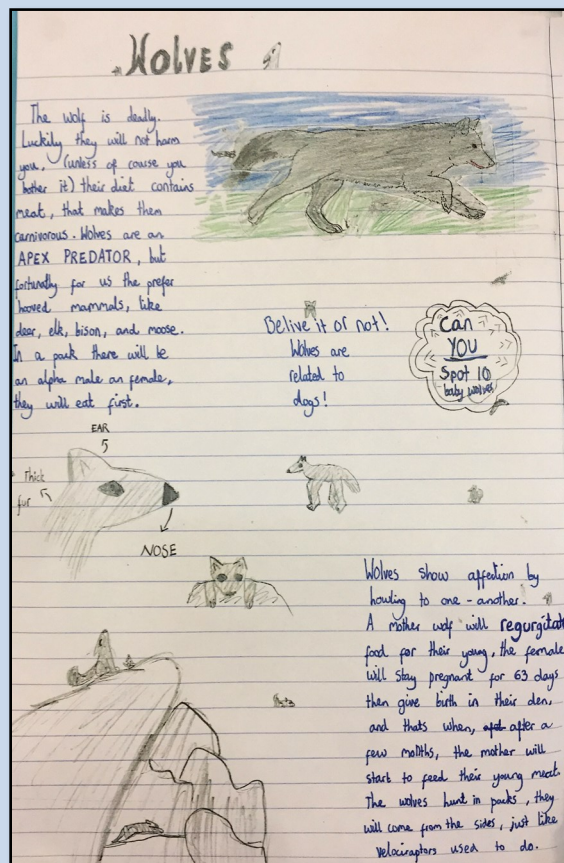 WOLVES
The wolf is deadly.
Luckily they will not harm
you, (unless of couse you
bother it) their diet contains
meat, that makes them
carnivorous. Wolves are an
APEX PREDATOR, but
fortunatly for us the prefer
hooved mammals, like
deer, elk, bison, and moose.
In a pack there will be
an alpha male an female,
they will eat first.
Belive it or not!
Wolves are
related to
dogs!
Can
YOU
Spot 10
baby wolves
EAR
Thick
fur
NOSE
Wolves show affection by
howling to one-another.
A mother wolf will regurgitat
food for their young, the female
will stay pregnant for 63 days
then give birth in their den,
and thats when, after a
few months, the mother will
start to feed their young meat.
The wolves hunt in packs, they
will come from the sides, just like
velociraptors used to do.